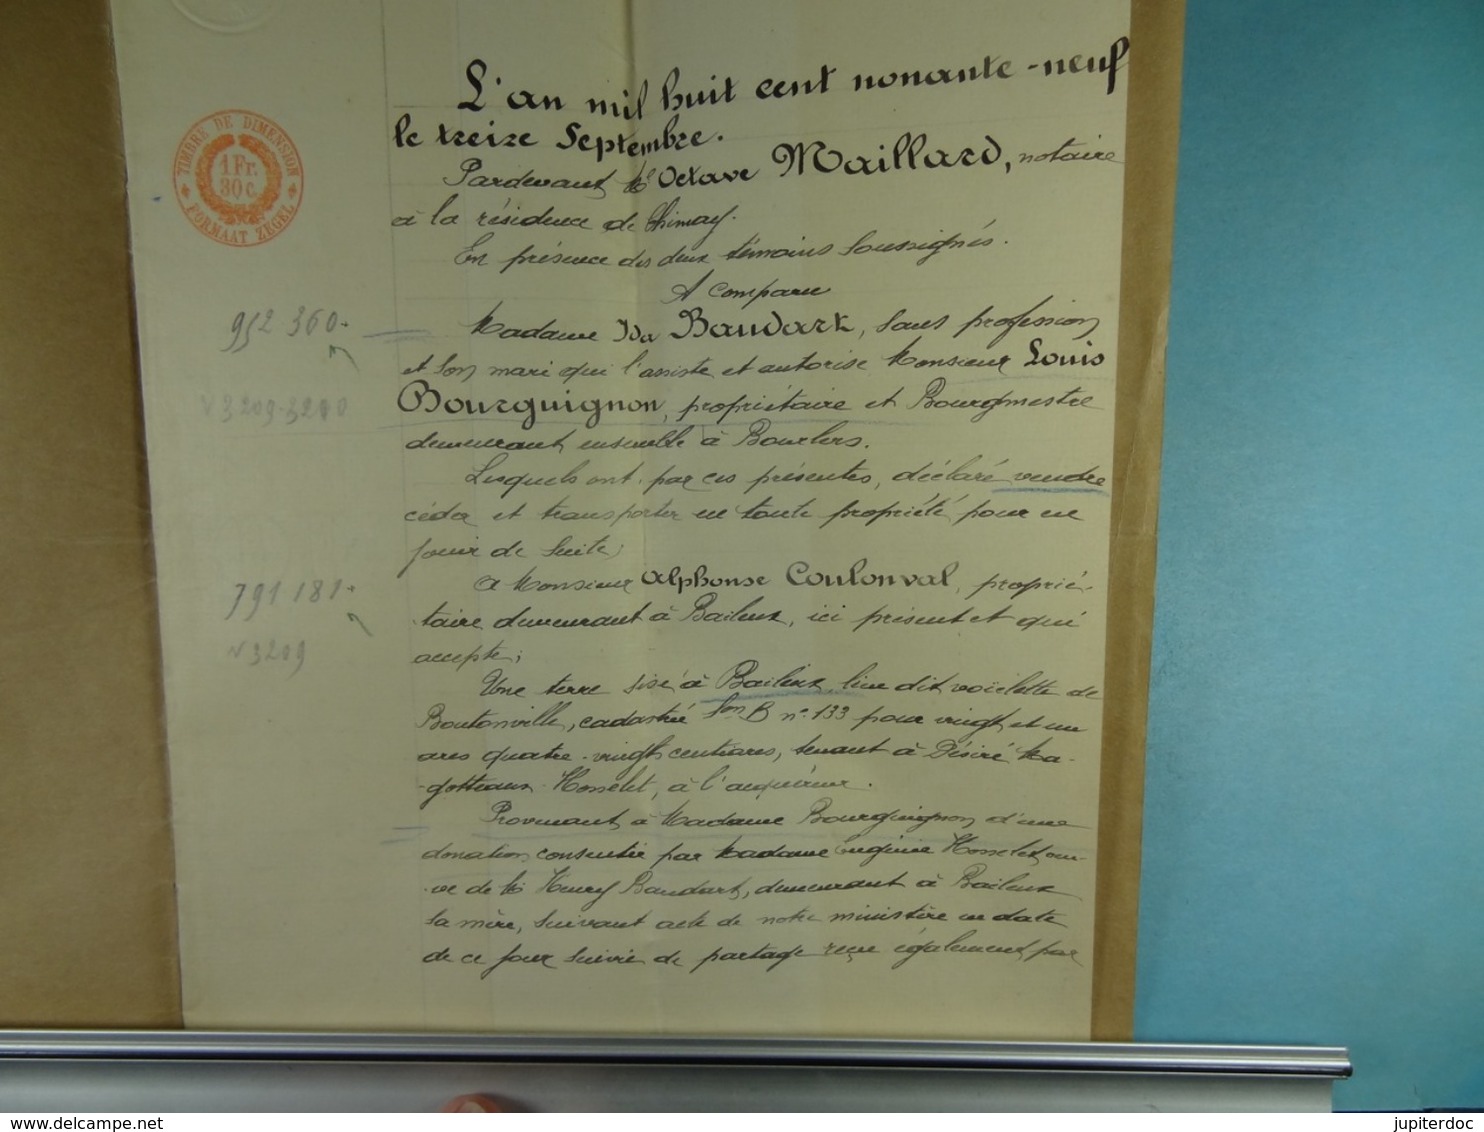 L'an mil huit cent nonante-neuf
le treize Septembre.
Pardevant Me Octave Maillard, notaire
à la résidence de Chimay.
En présence des deux témoins soussignés.
A comparu
Madame Ida Baudart, sans profession
et son mari qui l'assiste et autorise Monsieur Louis
Bourguignon, propriétaire et Bourgmestre
demeurant ensemble à Bourlers.
Lesquels ont par ces présentes, déclaré vendre
céder et transporter en toute propriété pour en
jouir de suite;
A Monsieur Alphonse Coulonval, proprié-
taire demeurant à Baileux, ici présent et qui
accepte;
Une terre sise à Baileux, lieu dit voïelette de
Boutonville, cadastrée Son B no 133 pour vingt et un
ares quatre-vingt centiares, tenant à Désiré Ma-
gotteaux-Hosselet, à l'acquéreur.
Provenant à Madame Bourguignon d'une
donation consentie par Madame Eugénie Hosselet, veu-
ve de M Henry Baudart, demeurant à Baileux
sa mère, suivant acte de notre ministère en date
de ce jour suivie de partage reçu également par
TIMBRE DE DIMENSION
1 Fr.
30 c.
FORMAAT ZEGEL
952 360.
V 3209-3210
791 181.
V 3209
www.delcampe.net
jupiterdoc